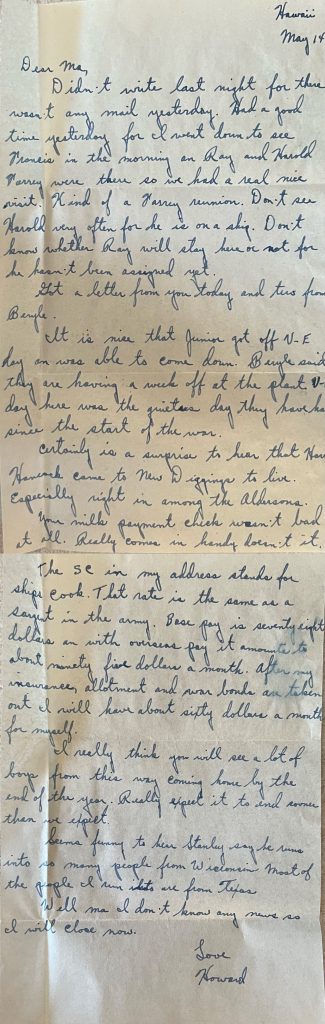 Hawaii
May 14
Dear Ma,
Didn't write last night for there
wasn't any mail yesterday. Had a good
time yesterday for I went down to see
Francis in the morning an Ray and Harold
Varrey were there so we had a real nice
visit. Kind of a Varrey reunion. Don't see
Harold very often for he is on a ship. Don't
know whether Ray will stay here or not for
he hasn't been assigned yet.
Got a letter from you today and two from
Beryle.
It is nice that Junior got off V-E
day an was able to come down. Beryle said
they are having a week off at the plant V-
day here was the quietess day they have ha
since the start of the war.
Certainly is a surprise to hear that
Hancock came to New Diggings to live.
Especially right in among the Aldersons.
Your milk payment check wasn't bad
at all. Really comes in handy doesn't it.
The SC in my address stands for
ships cook. That rate is the same as a
sargent in the army. Base pay is seventy eight
dollars an with overseas pay it amounts to
about ninety five dollars a month. After my
insurance, allotment and war bonds are taken
out I will have about sixty dollars a month
for myself.
I really think you will see a lot of
boys from this way coming home by the
end of the year. Really expect it to end sooner
than we expect.
Seems funny to hear Stanley say he runs
into so many people from Wisconsin Most of
the people I run into are from Texas
Well ma I don't know any news so
I will close now.
Love
Howard